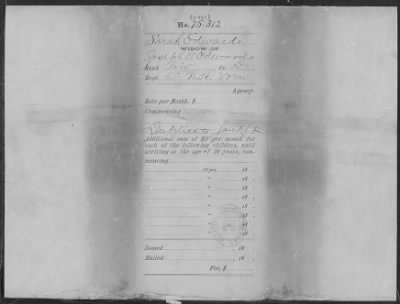 No. 75,312
Sarah Edwards
WIDOW OF
Joseph Edwards
Rank Co.
Regt N.H. Vols
Agency.
Rate per Month, $
Commencing
Duplicate Jacket
additional sum of $2 per month for
each of the following children, until
arriving at the age of 16 years, com-
mencing
18 .
" 18 .
" 18 .
" 18 .
" 18 .
" 18 .
" 18 .
Issued 18 .
Mailed 18 .
Fee, $